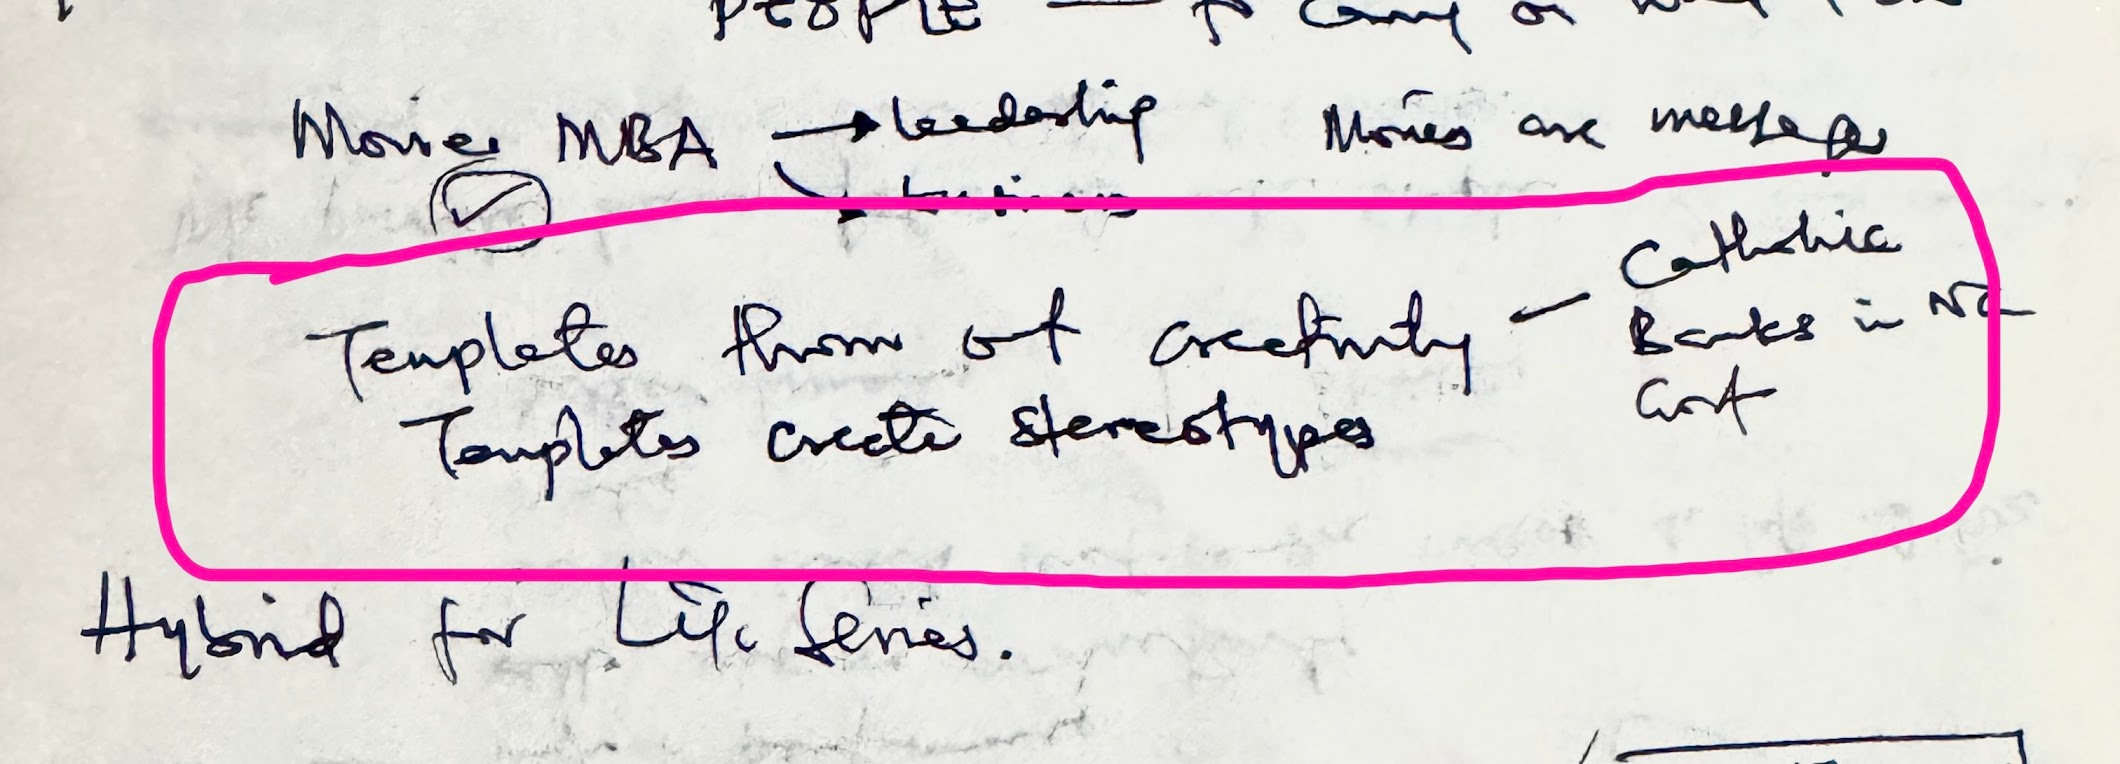 PEOPLE →
Movie MBA → leadership Movies are messages
→ business
Templates throw out creativity — Catholic
Banks in
Templates create stereotypes
Hybrid for Life Series.